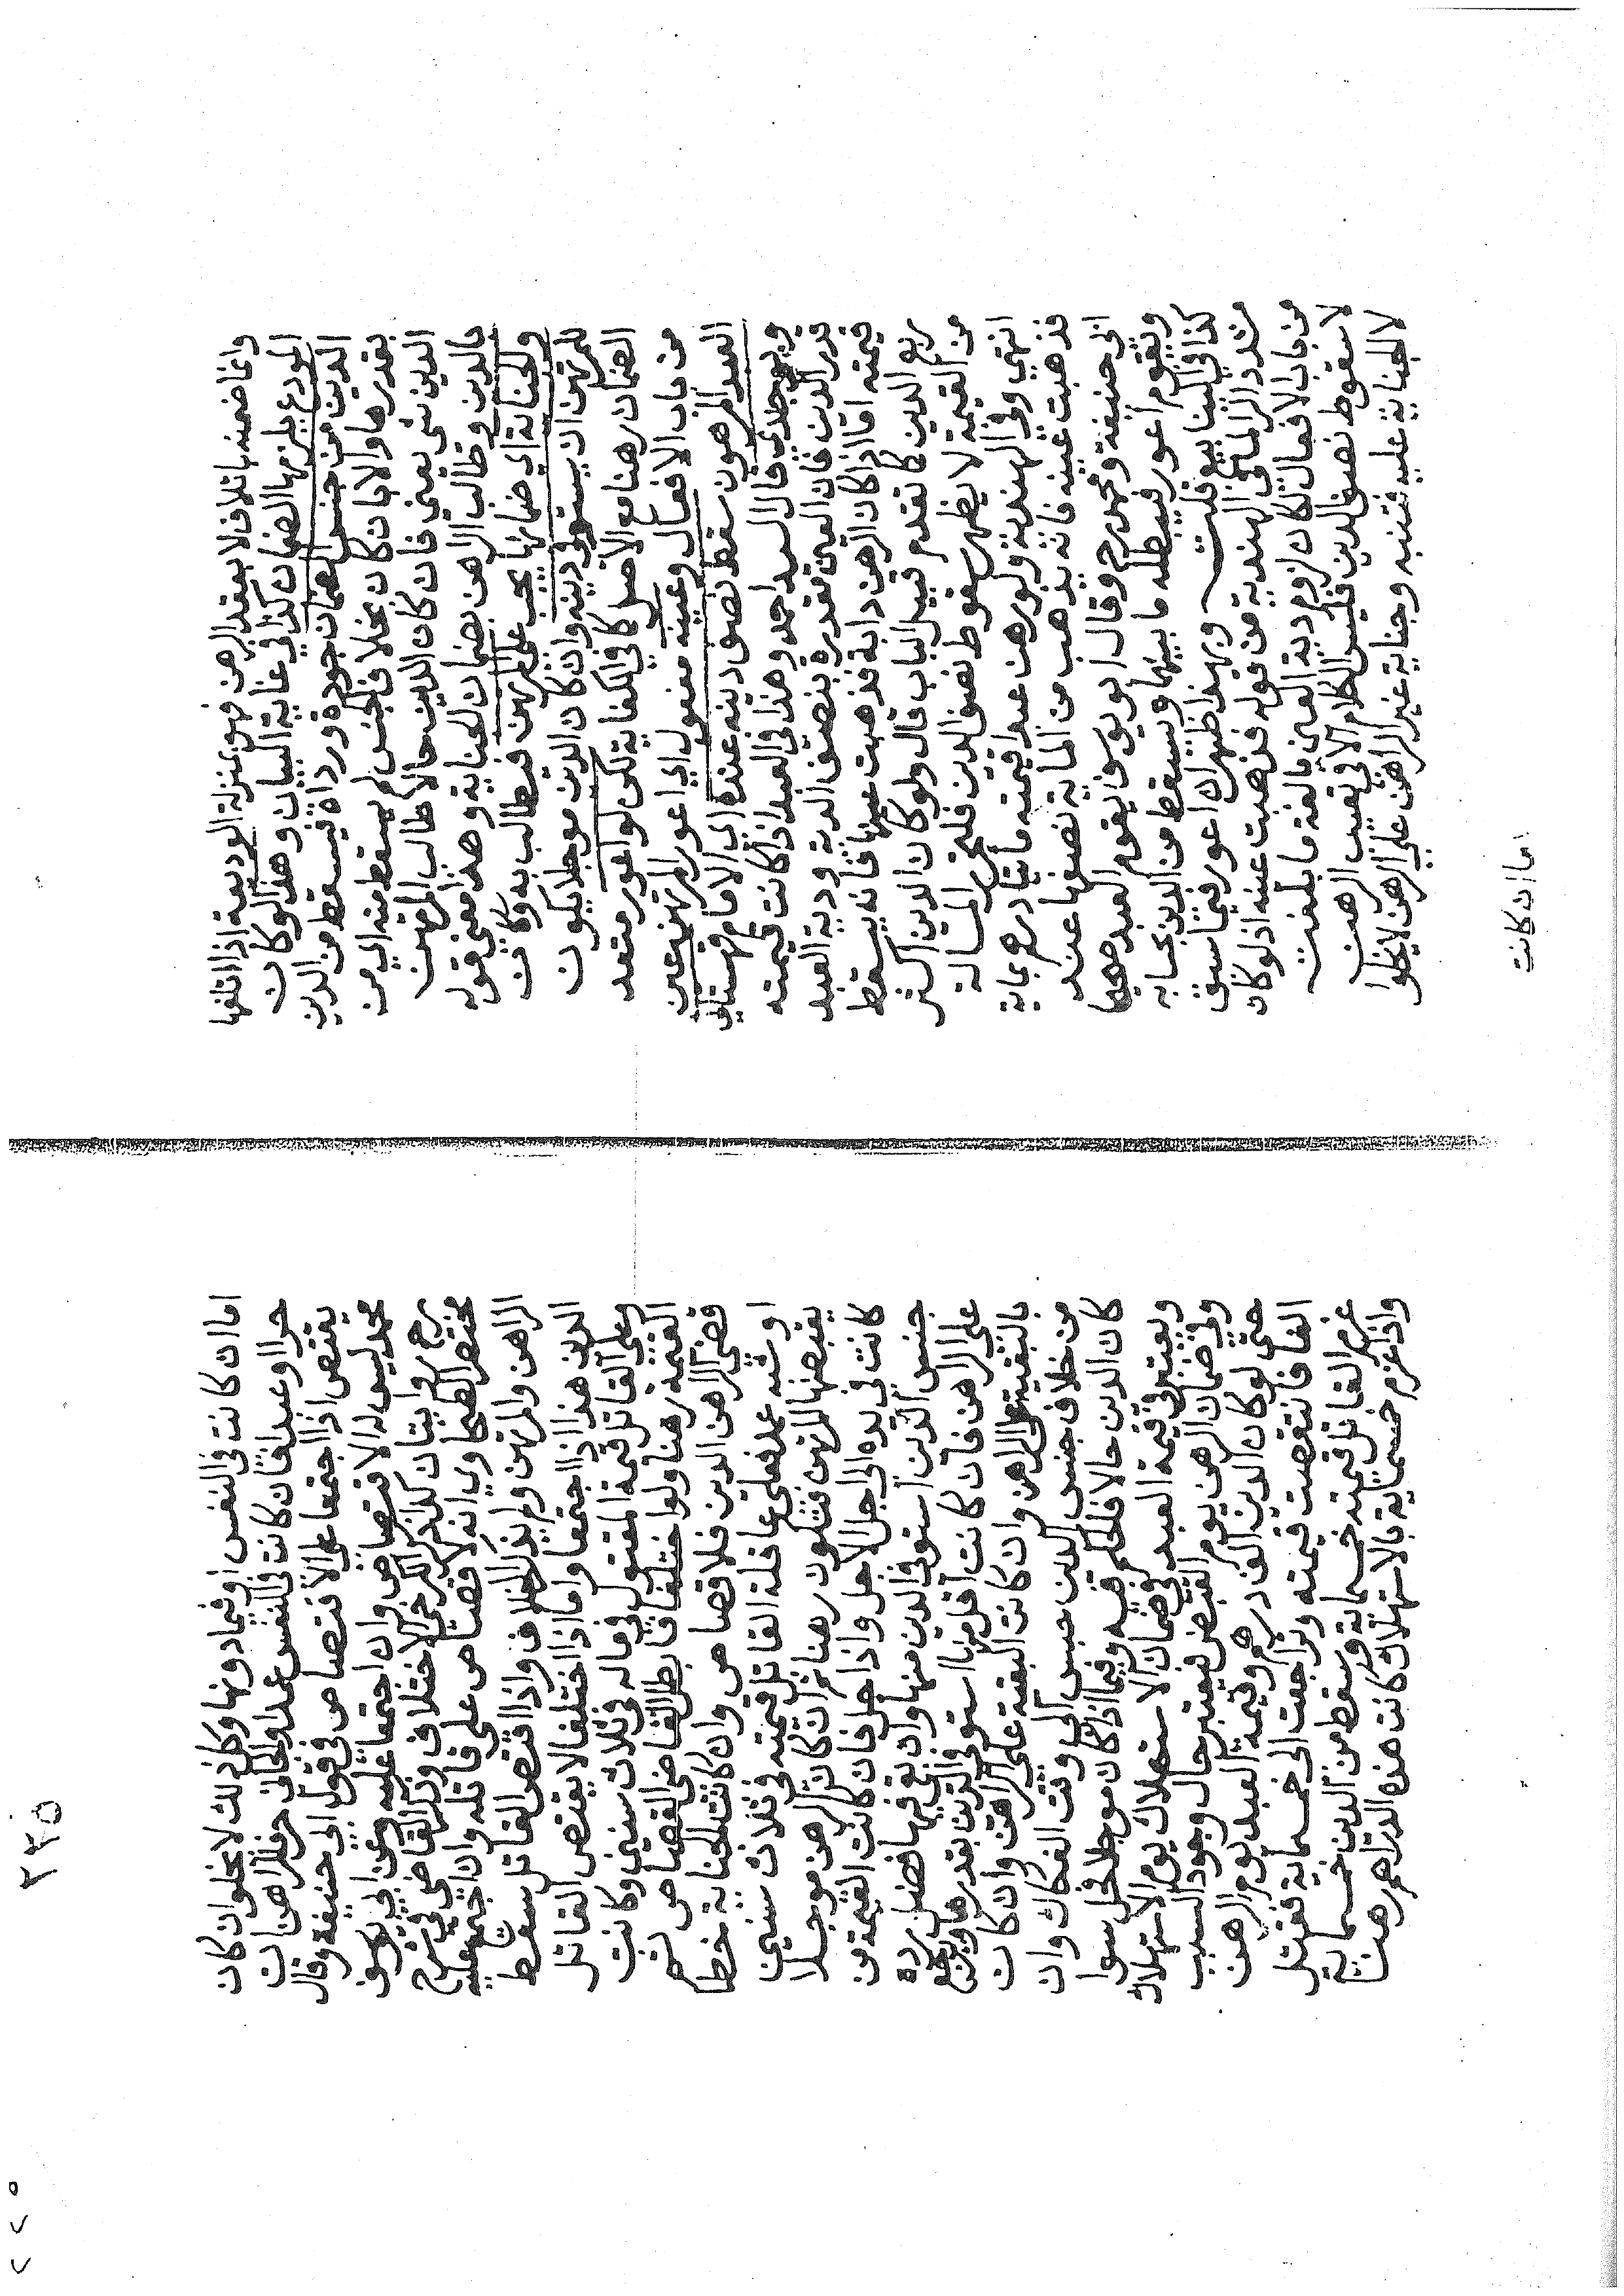 وانما ضمنه باتلافه لا بعقد الرهن فهو بمنزلة الوديعة اذا اتلفها
المودع يلزمها الضمان كذا في غاية البيان وهذا لو كان
الدين من جنس الضمان جودة ورداة فيسقط من الدين
بقدرها والا بان كان بخلاف الجنس لم يسقط منه اي من
الدين شي يعني فان كان الدين حالا طالب المرتهن
بالدين وطالب الراهن بضمان الجناية وهذا معنى قوله
والجناية اي ضمانها يجب على المرتهن فيطالب به وكان
للمرتهن ان يستوفي دينه وان كان الدين موجلا يكون
الضمان رهنا مع الاصل كما في الكفاية لكن لو اعور متعد
من باب الافعال وعينه مفعول اي اعور المرتهن عين
العبد المرهون سقط نصف دينه عنده اي الامام قهستاني
وبرجندي قال السيد احمد وهذا في العبد اذا كانت قيمته
قدر الدين فان العين مقدرة بنصف الدية ودية العبد
قيمته اما اذا كان الرهن دابة فذهبت عينها فانه يسقط
ربع الدين كما تقدم قبيل الباب قال ولو كان الدين اكثر
من القيمة لا يظهر سقوط نصف الدين فلتحرر المسالة
انتهى وفي الهندية ولو رهن عبدا قيمته مأيتا درهم بماية
فذهبت عينه فانه يذهب من الماية نصفها عند
ابي حنيفة ومحمد رح وقال ابو يوسف يقوم العبد صحيحا
ويقوم اعور فيبطله ما بينهما ويسقط من الدين بحسابه
كذا في الينابيع قلت وبهذا ظهر ان اعور فيما سبق
مشدد الزا لما في الهندية من قوله فذهبت عينه اذ لو كان
من باب الافعال لكان لزوم دية العين بالغة ما بلغت
لا سقوط نصف الدين فليس الكلام الا في تعيب الرهن
لا الجناية عليه فتنبه وجناية غير الراهن على الرهن لا يخلوا
اما ان كانت
٢٢٥
اما ان كانت في النفس او فيما دونها وكل ذلك لا يخلوا ان كان
حرا او عبدا فان كانت في النفس عمدا والجاني حر فللراهن ان
يقتص اذا اجتمعا على الاقتصاص في قول ابي حنيفة وقال
محمد ليس له الاقتصاص وان اجتمعا عليه وعن ابي يوسف
رح روايتان كذا ذكر الكرخي الاختلاف وذكر القاضي في شرح
مختصر الطحاوي انه لا قصاص على قاتله وان اجتمع عليه
الراهن والمرتهن ولم يذكر الخلاف واذا اقتص القاتل سقط
الدين هذا اذا اجتمعا واما اذا اختلفا لا يقتص القاتل
وعلى القاتل قيمة المقتول في ماله في ثلاث سنين وكانت
القيمة رهنا ولو اختلفا فابطل القاضي القصاص ثم
قضى الراهن الدين فلا قصاص وان كانت الجناية خطا
او شبه عمد فعلى عاقلة القاتل قيمته في ثلاث سنين
يقبضها المرتهن فتكون رهنا ثم ان كان الرهن موجلا
كانت في يده الى اجل الاجل واذا حل فان كانت القيمة من
جنس الدين استوفى الدين منها وان بقي فيها فضل رده
على الراهن فان كانت اقل منها استوفى الدين بقدرها ويرجع
بالبقية على الراهن وان كانت البقية على الراهن وان كان
من خلاف جنس الدين حبس الى وقت الفكاك وان
كان الدين حالا فالحكم فيه وفيما اذا كان موجلا فحل سوا
ويعتبر في قيمة العبد في ضمان الاستهلاك يوم الاستهلاك
وفي ضمان الرهن يوم القبض فيعتبر حال وجود السبب
حتى لو كان الدين الف درهم وقيمة العبد يوم الرهن
الفا فانتقصت قيمته وتراجعت الى خمسماية فقتل
غرم القاتل قيمته خمسماية وسقط من الدين خمسماية
واذا غرم خمسماية بالاستهلاك كانت هذه الدراهم رهنا